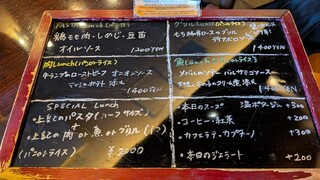 PASTA Lunch
鶏モモ肉・しめじ・豆苗
オイルソース
1200YEN
肉Lunch(パンorライス)
牛ランプのローストビーフ オニオンソース
マッシュポテト添え
1400YEN
SPECIAL Lunch
・上記のパスタ(ハーフサイズ)
+
・上記の肉or魚orグリル(1つ)
(パンorライス) ¥2000
グリルLunch(パンorライス)
もち豚ロースのグリル
1400YEN
魚Lunch(パンorライス)
メバルのソテー バルサミコソース
1400YEN
・本日のスープ 温ポタージュ +300
・コーヒー・紅茶 +200
・カフェラテ・カプチーノ +300
・本日のジェラート +200